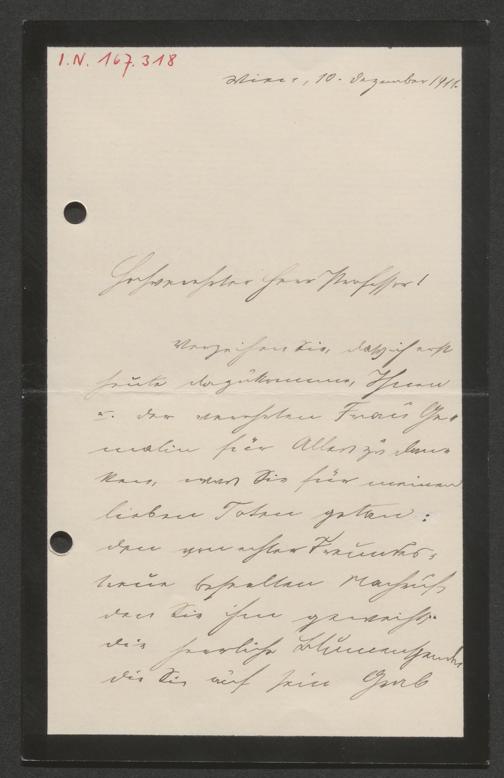 I.N. 167.318
Wien, 10. Dezember 1911.
Hochverehrter Herr Professor!
Verzeihen Sie, daß ich erst
heute dazukomme, Ihnen
u. der verehrten Frau Ge-
malin für Alles zu dan-
ken, was Sie für meinen
lieben Toten getan:
den von echter Freundes-
treue beseelten Nachruf,
den Sie ihm geweiht,
die herrliche Blumenspende
die Sie auf sein Grab